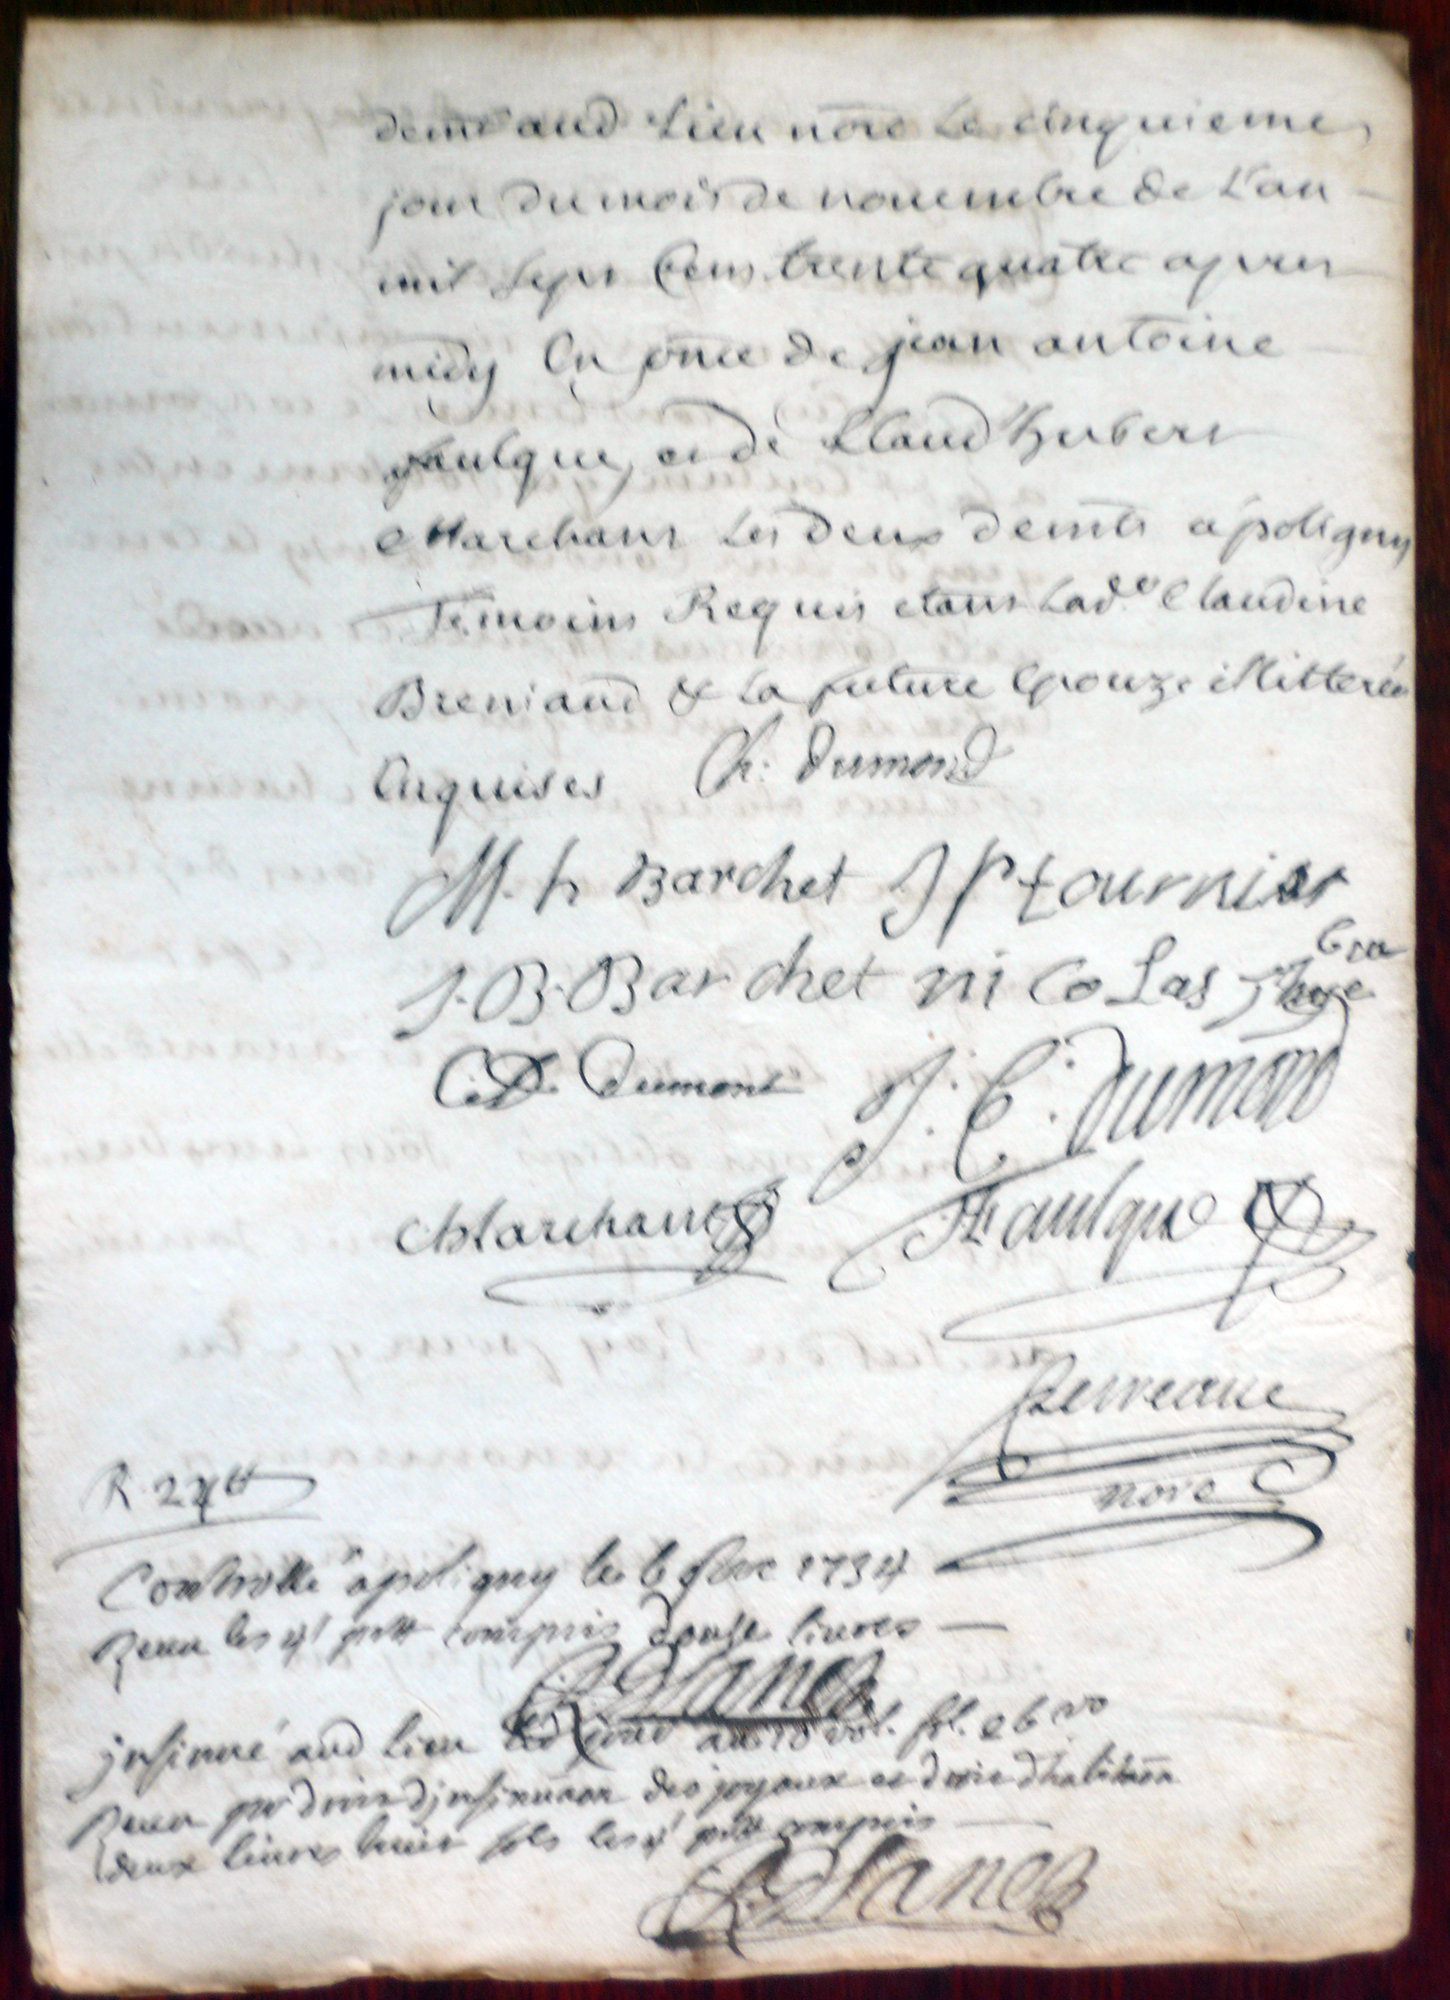 demt aud lieu nore le cinquieme
jour du mois de nouembre de L'an
mil sept Cens trente quatre apres
midy En pnce de jean antoine
faulque, et de Claud hubert
Marchant les deux demts a poligny
Temoins Requis etant lade Claudine
Breniaud & la future epouze illitterées
Enquises Ch. Dumond
M. h Barchet J P fournier
J. B. Barchet nicolas
C. D. Dumont J. C. Dumond
Marchant JFaulque
nore
R. 24tt
Controllé a poligny le 6 9bre 1734
Receu les 4s ptt compris douse liures
insinué aud lieu au 10 vol. fol. 26 vo
Receu pr droit d'insinuaon des joyaux et droit d'habitaon
deux liures huit sols les 4s ptt compris